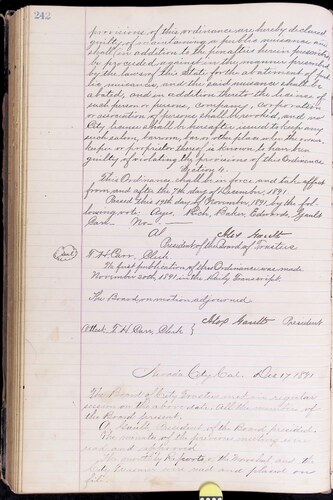 242
provisions of this ordinance are hereby declared
guilty of maintaining a public nuisance and
shall in addition to the penalties herein prescribed
be proceeded against in the manner prescribed
by the laws of this State for the abatement of pub
lic nuisance, and the said nuisance shall be
abated, and in addition thereto the license of
such person or persons, company, corporation
or association of persons shall be revoked, and no
City license shall be hereafter issued to
such saloon, barroom, bar or other place when the owner
keeper or proprietor thereof is known to have been
guilty of violating the provisions of this Ordinance
Section 4.
This Ordinance shall be in force and take effect
from and after the 7th day of December, 1891.
Passed this 19th day of November, 1891, by the fol
lowing vote. Ayes. Rich, Baker, Edwards, Gault
Carr. No —
Alex Gault
President of the Board of Trustees
Seal
T. H. Carr, Clerk
The first publication of this Ordinance was made
November 20th, 1891 in the Daily Transcript.
The Board on motion adjourned
Alex Gault President
Attest T. H. Carr Clerk
Nevada City, Cal. Dec 17 1891
The Board of City Trustees met in regular
session on the above date. All the members of
the Board present.
A. Gault President of the Board presided.
The minutes of the previous meeting were
read and approved.
The Reports of the Marshal and the
City Treasurer was read and placed on
file